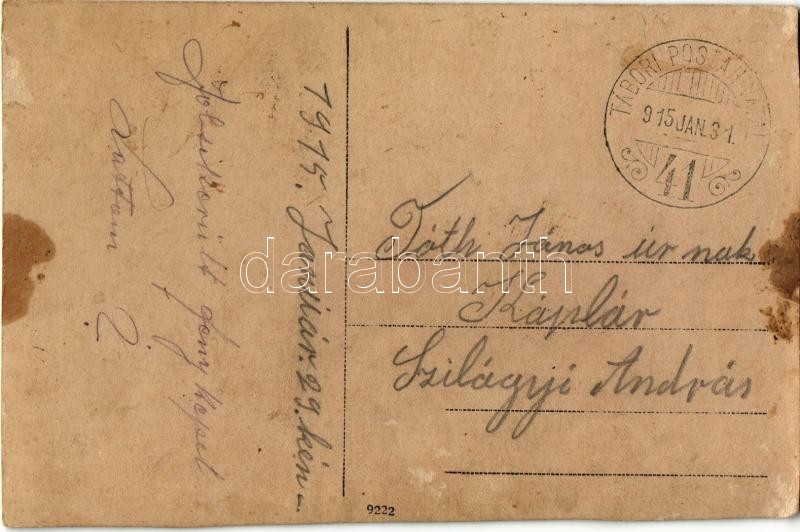 Jól sikerült fény képet
Láttam ?
1915. Január. 29. kén
TÁBORI POSTAHIVATAL
915 JAN. 31.
41
Tóth János úr nak
Káplár
Szilágyi András
darabanth
9222